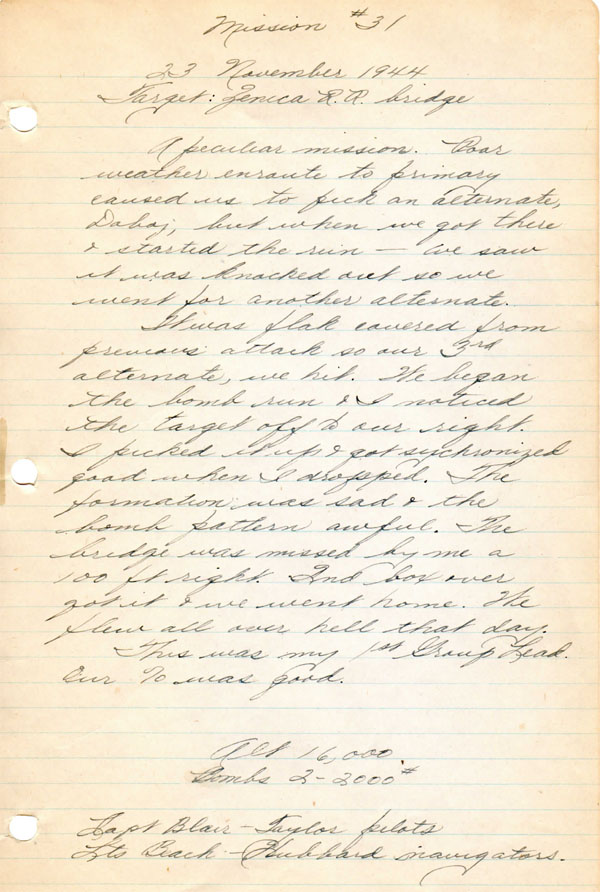 Mission #31
23 November 1944
Target: Zenica R.R. bridge
A peculiar mission. Poor
weather enroute to primary
caused us to pick an alternate,
Doboj, but when we got there
& started the run — we saw
it was knocked out so we
went for another alternate.
It was flak covered from
previous attack so our 3rd
alternate, we hit. We began
the bomb run & I noticed
the target off to our right.
I picked it up & got synchronized
good when I dropped. The
formation was sad & the
bomb pattern awful. The
bridge was missed by me a
100 ft right. 2nd box over
got it & we went home. We
flew all over hell that day.
This was my 1st Group Lead.
Our % was good.
Alt 16,000
Bombs 2-2000#
Capt Blair - Taylor pilots
Lts Beach - Hubbard navigators.